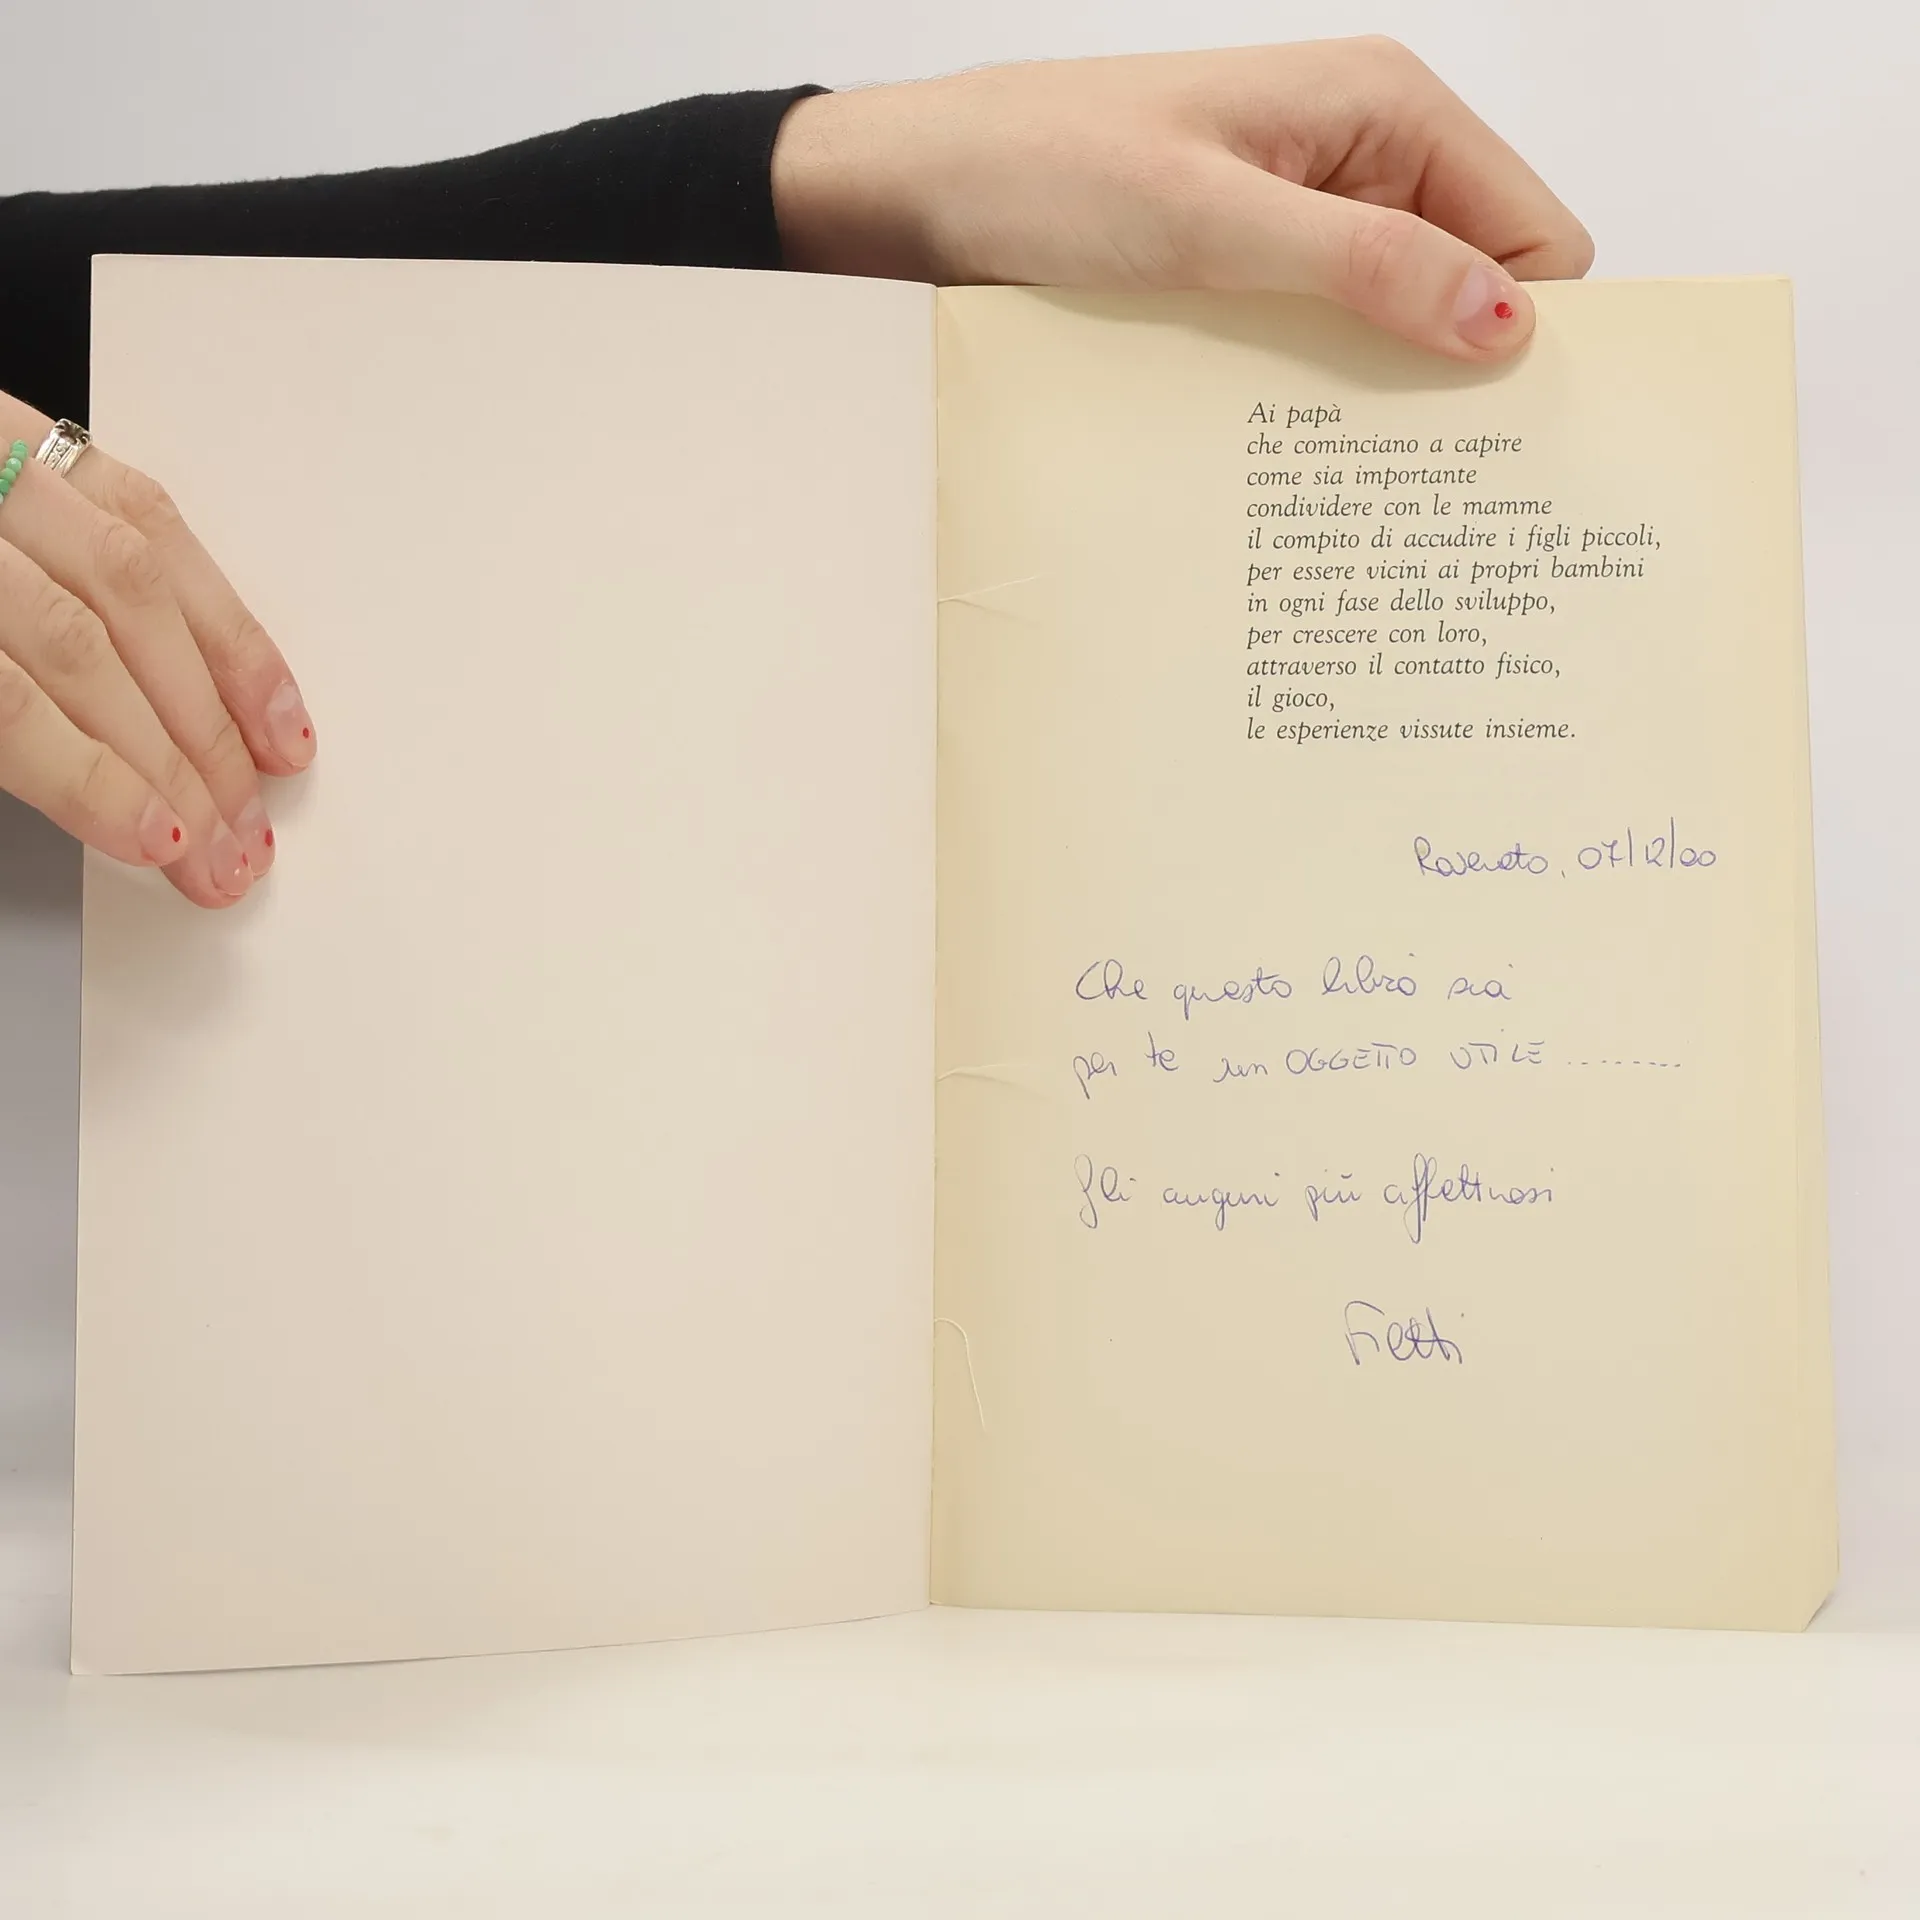 Ai papà
che cominciano a capire
come sia importante
condividere con le mamme
il compito di accudire i figli piccoli,
per essere vicini ai propri bambini
in ogni fase dello sviluppo,
per crescere con loro,
attraverso il contatto fisico,
il gioco,
le esperienze vissute insieme.
07/12/00
Che questo libro sia
per te un OGGETTO UTILE ........
Gli auguri più affettuosi